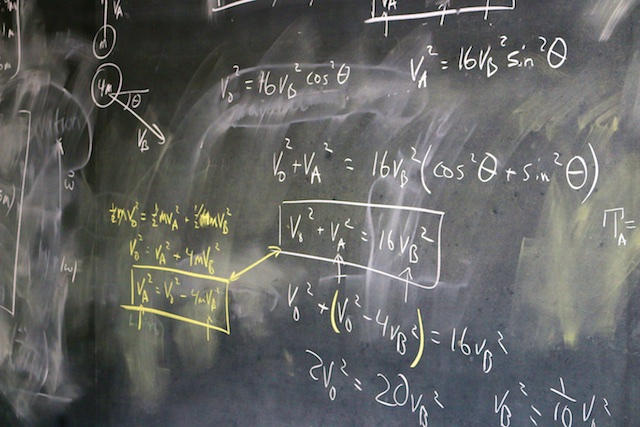 V_A
m
4m
θ
V_B
V_A
V_0² = 16V_B² cos²θ
V_A² = 16V_B² sin²θ
V_0² + V_A² = 16V_B² (cos²θ + sin²θ)
½mV_0² = ½mV_A² + ½4mV_B²
V_0² = V_A² + 4mV_B²
V_A² = V_0² - 4mV_B²
V_0² + V_A² = 16V_B²
T_A =
V_0² + (V_0² - 4V_B²) = 16V_B²
2V_0² = 20V_B²
V_B² = 1/10 V_0²